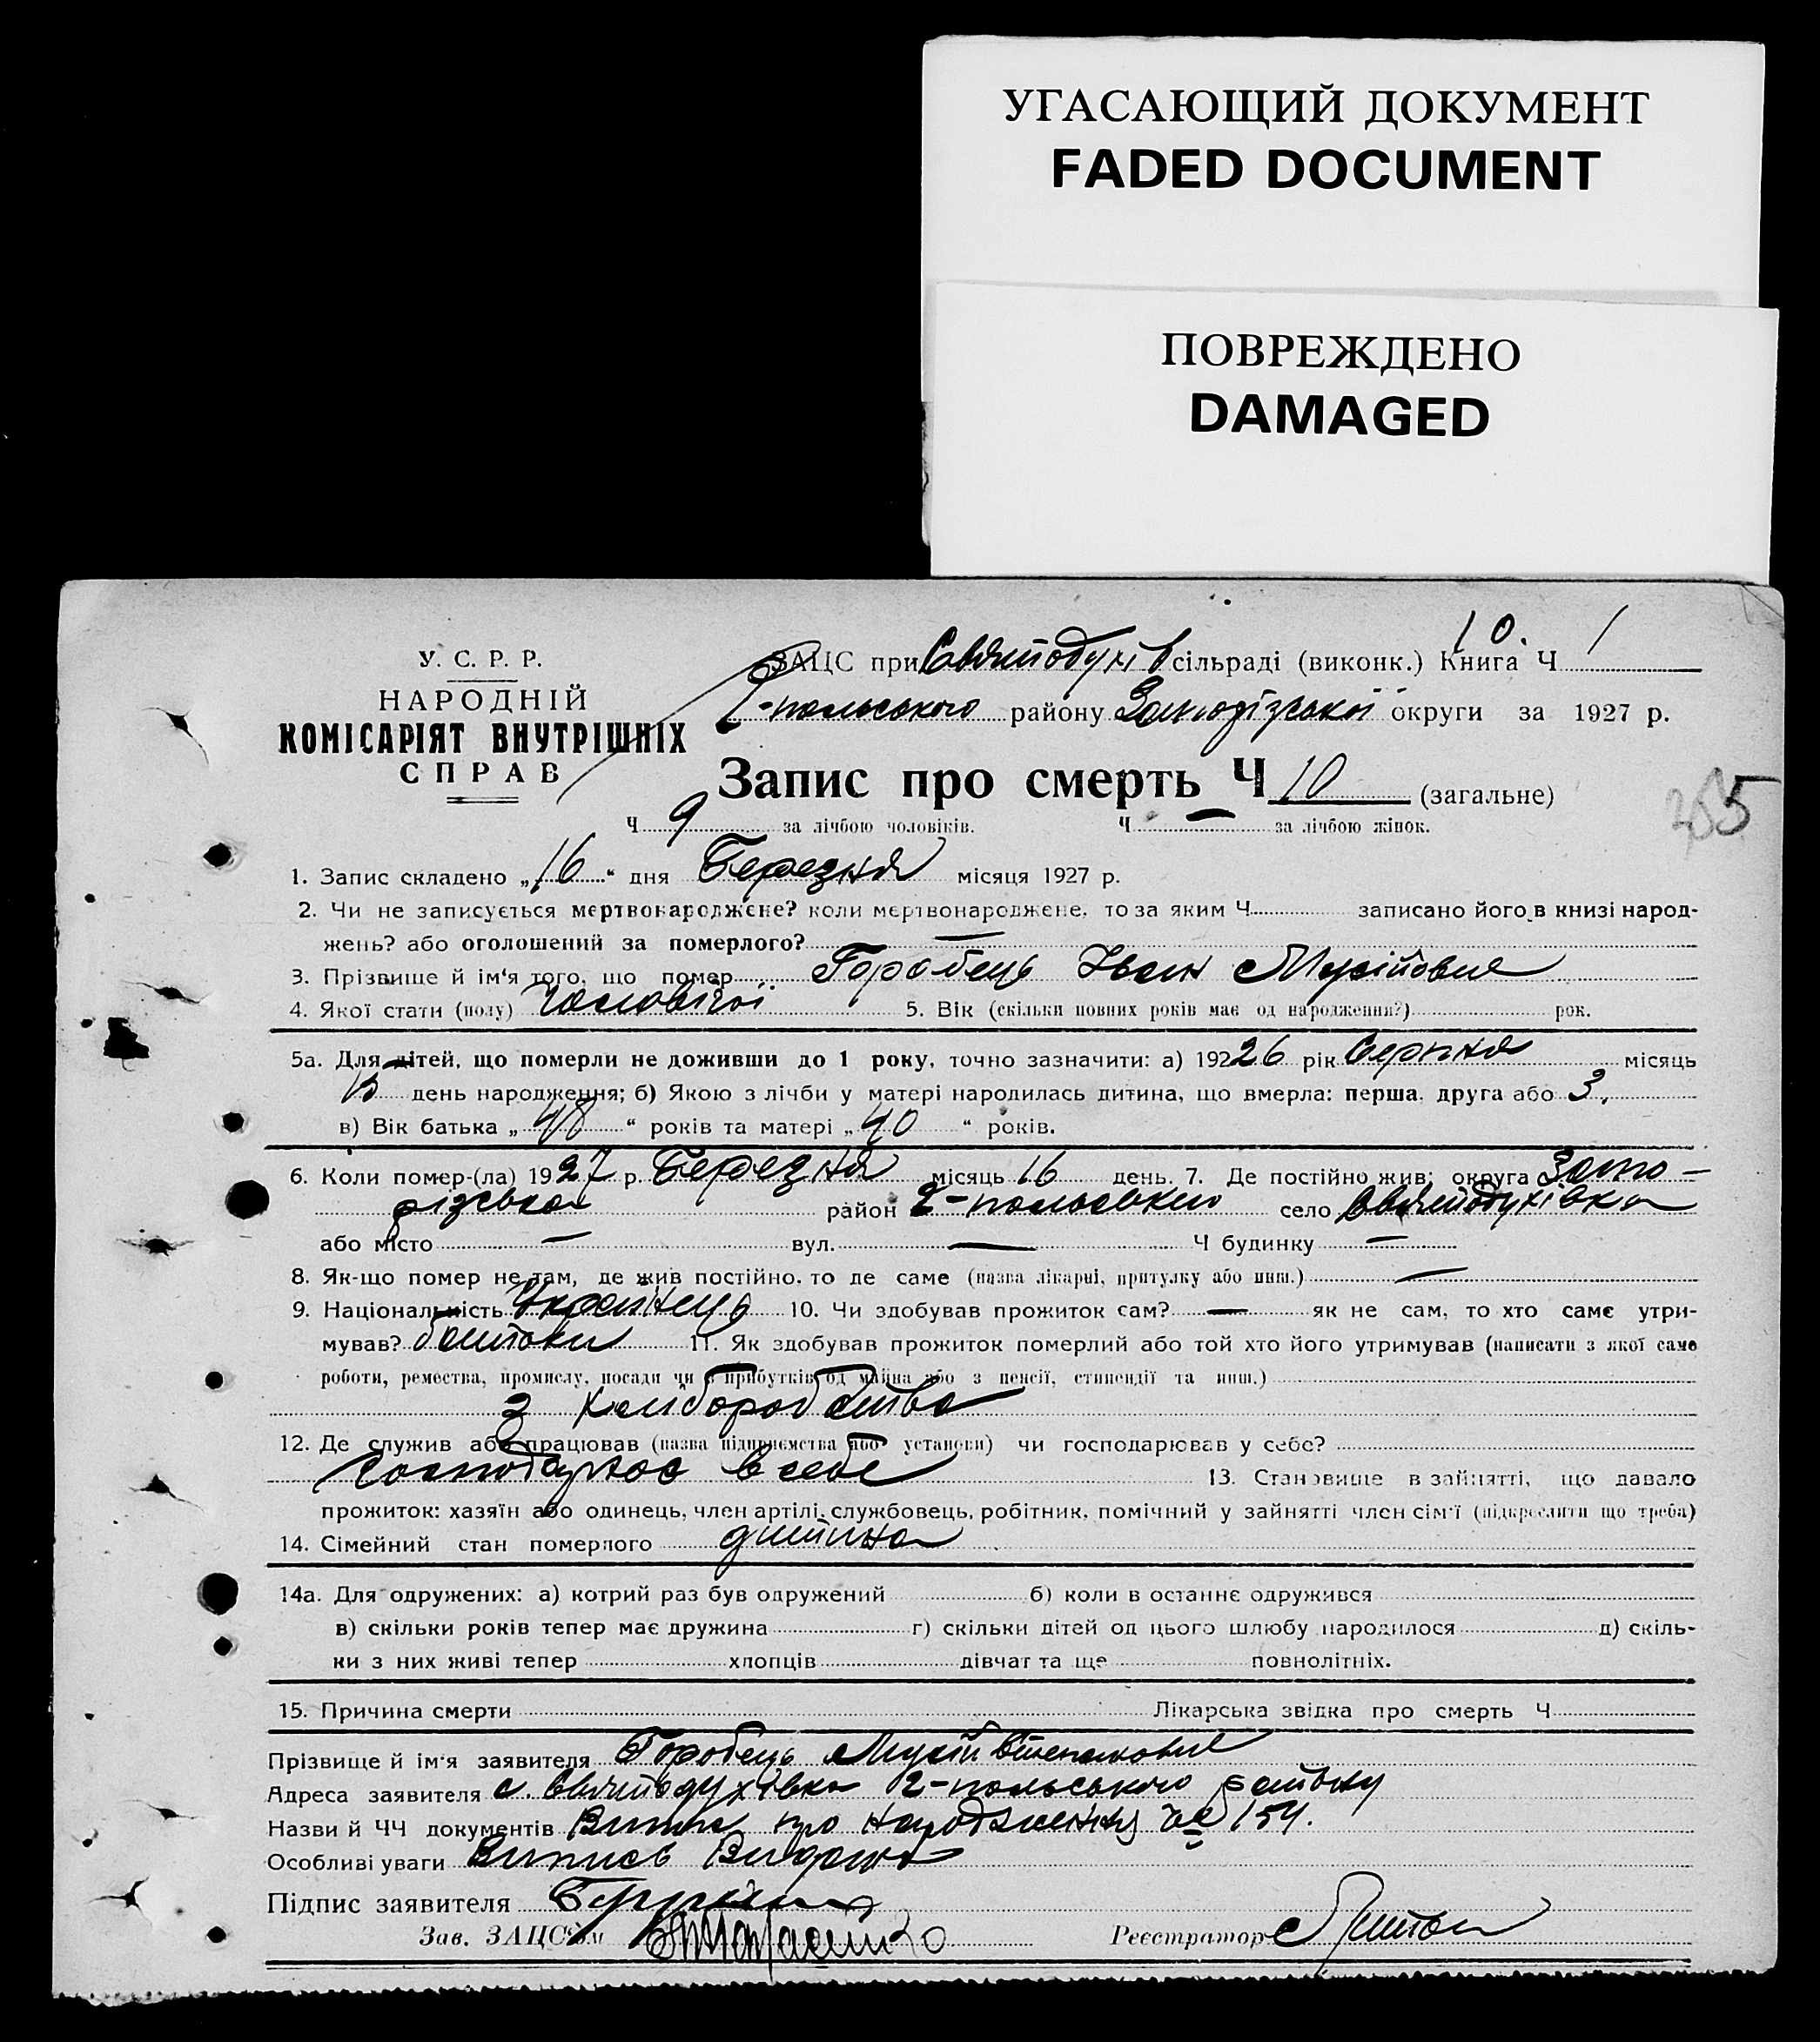 УГАСАЮЩИЙ ДОКУМЕНТ
FADED DOCUMENT
ПОВРЕЖДЕНО
DAMAGED
У. С. Р. Р.
НАРОДНІЙ
КОМІСАРІЯТ ВНУТРІШНІХ
СПРАВ
ЗАЦС при Святодухів сільраді (виконк.) Книга Ч 1
10.
2-польського району Запорізської округи за 1927 р.
Запис про смерть Ч 10 (загальне)
Ч 9 за лічбою чоловіків. Ч — за лічбою жінок.
1. Запис складено „16“ дня Березня місяця 1927 р.
2. Чи не записується мертвонароджене? коли мертвонароджене, то за яким Ч записано його в книзі народ-
жень? або оголошений за померлого? —
3. Прізвище й ім‘я того, що помер Горобець Іван Мусійович
4. Якої стати (полу) Чоловічої 5. Вік (скільки повних років має од народження?) рок.
5а. Для дітей, що померли не доживши до 1 року, точно зазначити: а) 19226 рік Серпня місяць
день народження; б) Якою з лічби у матері народилась дитина, що вмерла: перша, друга або 3.
в) Вік батька „48“ років та матері „40“ років.
6. Коли помер-(ла) 1927 р. Березня місяць 16 день. 7. Де постійно жив: округа Запо-
різська район 2-польський село Святодухівка
або місто — вул. — Ч будинку —
8. Як-що помер не там, де жив постійно, то де саме (назва лікарні, притулку або инш.) —
9. Національність Українець 10. Чи здобував прожиток сам? — як не сам, то хто саме утри-
мував? батьки 11. Як здобував прожиток померлий або той хто його утримував (написати з якої саме
роботи, ремества, промислу, посади чи з прибутків од майна або з пенсії, стипендії та инш.)
З хліборобства
12. Де служив або працював (назва підприємства або установи) чи господарював у себе?
Господарює в себе 13. Становище в зайнятті, що давало
прожиток: хазяїн або одинець, член артілі, службовець, робітник, помічний у зайнятті член сім‘ї (підкреслити що треба)
14. Сімейний стан померлого дитина
14а. Для одружених: а) котрий раз був одружений б) коли в останнє одружився
в) скільки років тепер має дружина г) скільки дітей од цього шлюбу народилося д) скіль-
ки з них живі тепер хлопців дівчат та ще повнолітніх.
15. Причина смерти Лікарська звідка про смерть Ч
Прізвище й ім‘я заявителя Горобець Мусій Степанович
Адреса заявителя с. Святодухівка 2-польського району
Назви й ЧЧ документів Випис про народження 154.
Особливі уваги Випись Видана
Підпис заявителя
Зав. ЗАЦС‘ом
Реєстратор